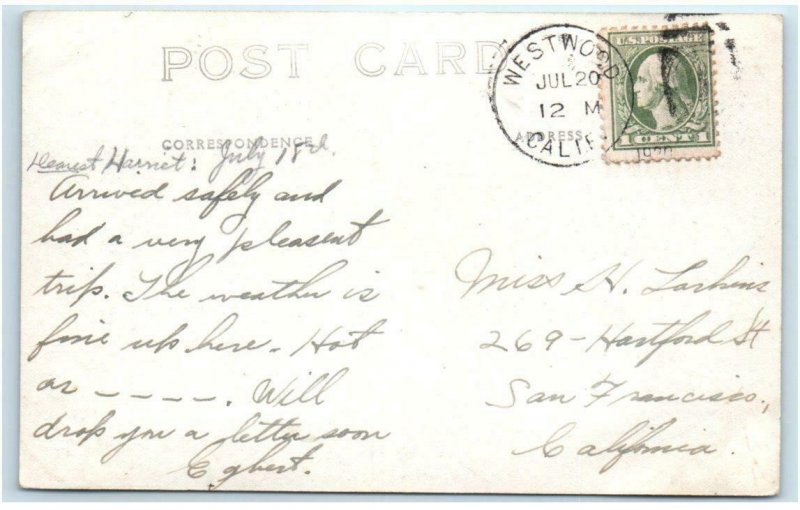 POST CARD
WESTWOOD
JUL 20
12 M
CALIF.
1920
U.S. POSTAGE
1 CENT 1
CORRESPONDENCE
ADDRESS
Dearest Harriet: July 18th
Arrived safely and
had a very pleasent
trip. The weather is
fine up here. Hot
as _ _ _ _ . Will
drop you a letter soon
Egbert.
Miss H. Larkins
269 - Hartford St
San Francisco,
California.